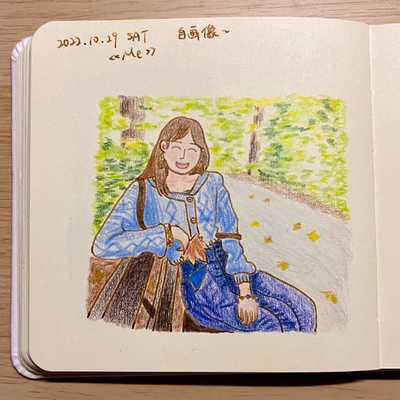 2022.10.29 SAT 自画像~
<<Me>>